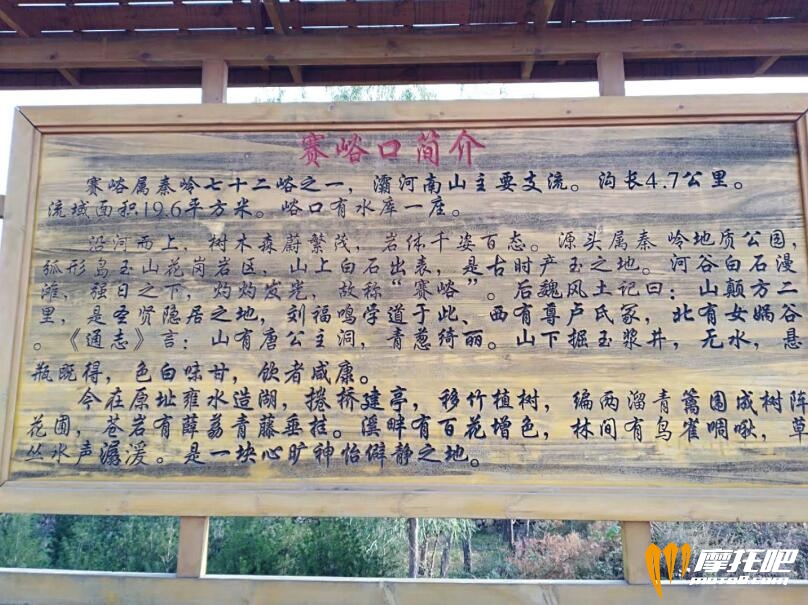 赛峪口简介
赛峪属秦岭七十二峪之一，灞河南山主要支流。沟长4.7公里。
流域面积19.6平方米。峪口有水库一座。
沿河而上，树木森蔚繁茂，岩体千姿百态。源头属秦岭地质公园，
弧形岛玉山花岗岩区，山上白石出表，是古时产玉之地。河谷白石漫
滩，强日之下，灼灼发光，故称“赛峪”。后魏风土记曰：山颠方二
里，是圣贤隐居之地，刘福鸣学道于此，西有尊卢氏冢，北有女娲谷
。《通志》言：山有唐公主洞，青葱绮丽。山下掘玉浆井，无水，悬
瓶既得，色白味甘，饮者咸康。
今在原址雍水造湖，捲桥建亭，移竹植树，编两溜青篱围成树阵
花圃，苍岩有薜荔青藤垂挂。溪畔有百花增色，林间有鸟雀啁啾，草
丛水声潺湲。是一块心旷神怡僻静之地。
摩托吧
moto8.com